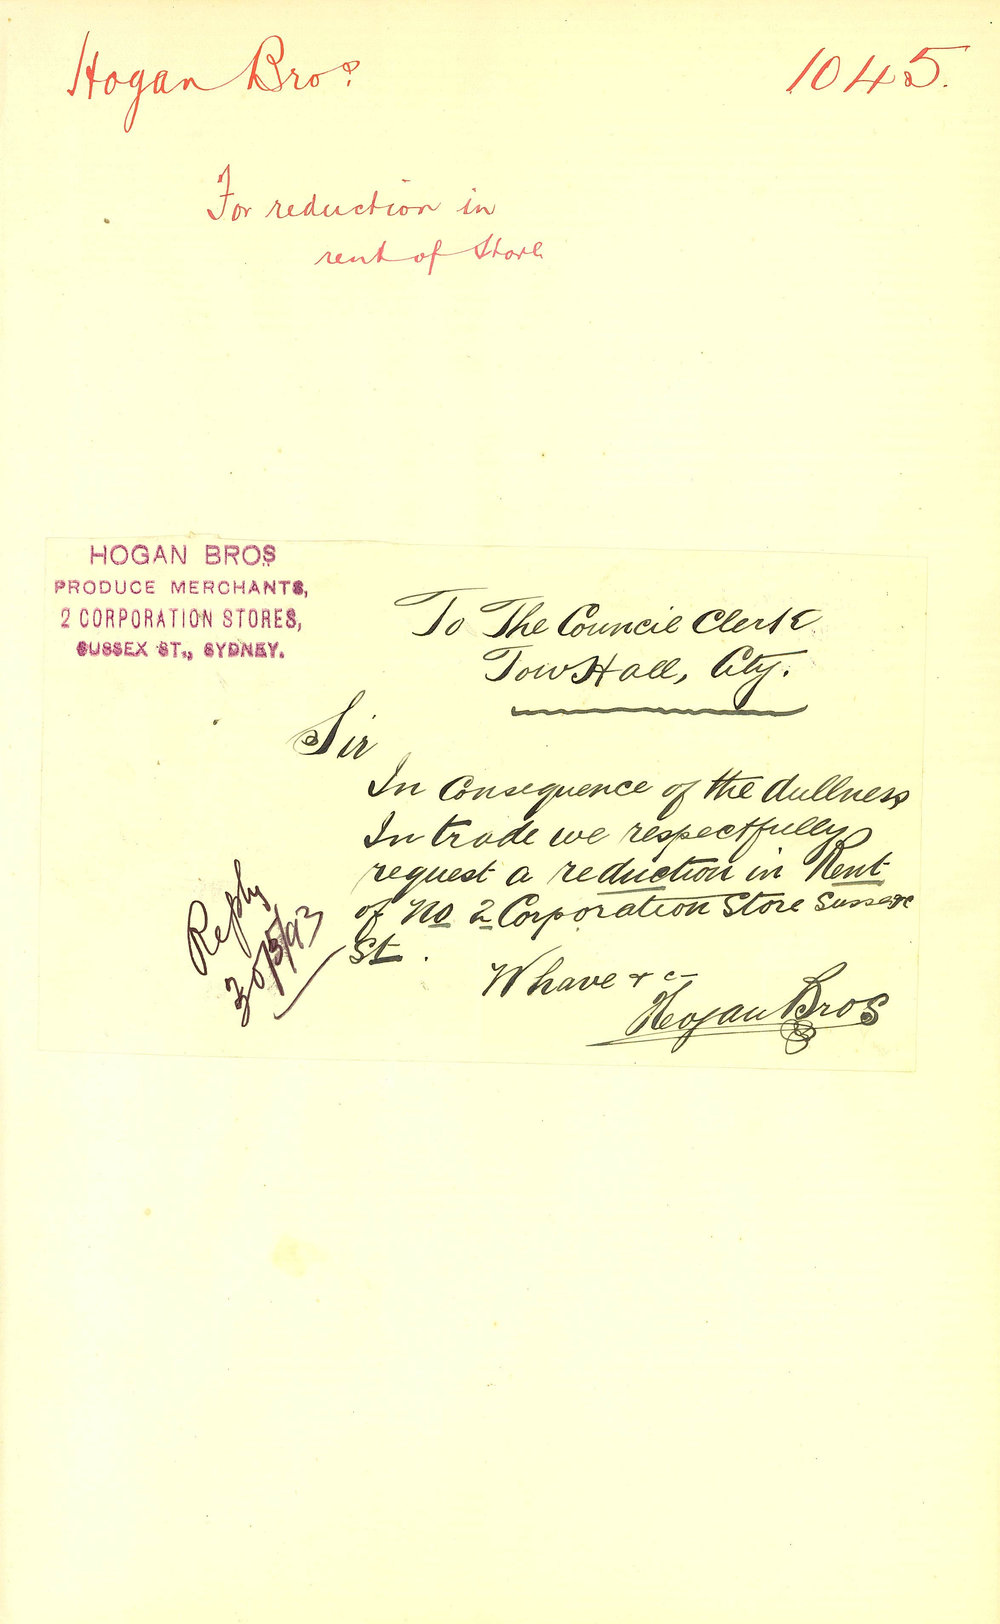 Hogan Bros
1045.
For reduction in
rent of Store
HOGAN BROS
PRODUCE MERCHANTS,
2 CORPORATION STORES,
SUSSEX ST., SYDNEY.
To The Council Clerk
Town Hall, City.
Sir
In Consequence of the dullness
In trade we respectfully
request a reduction in Rent
of No 2 Corporation Store Sussex
St.
W have & c
Hogan Bros
Reply
30/5/93